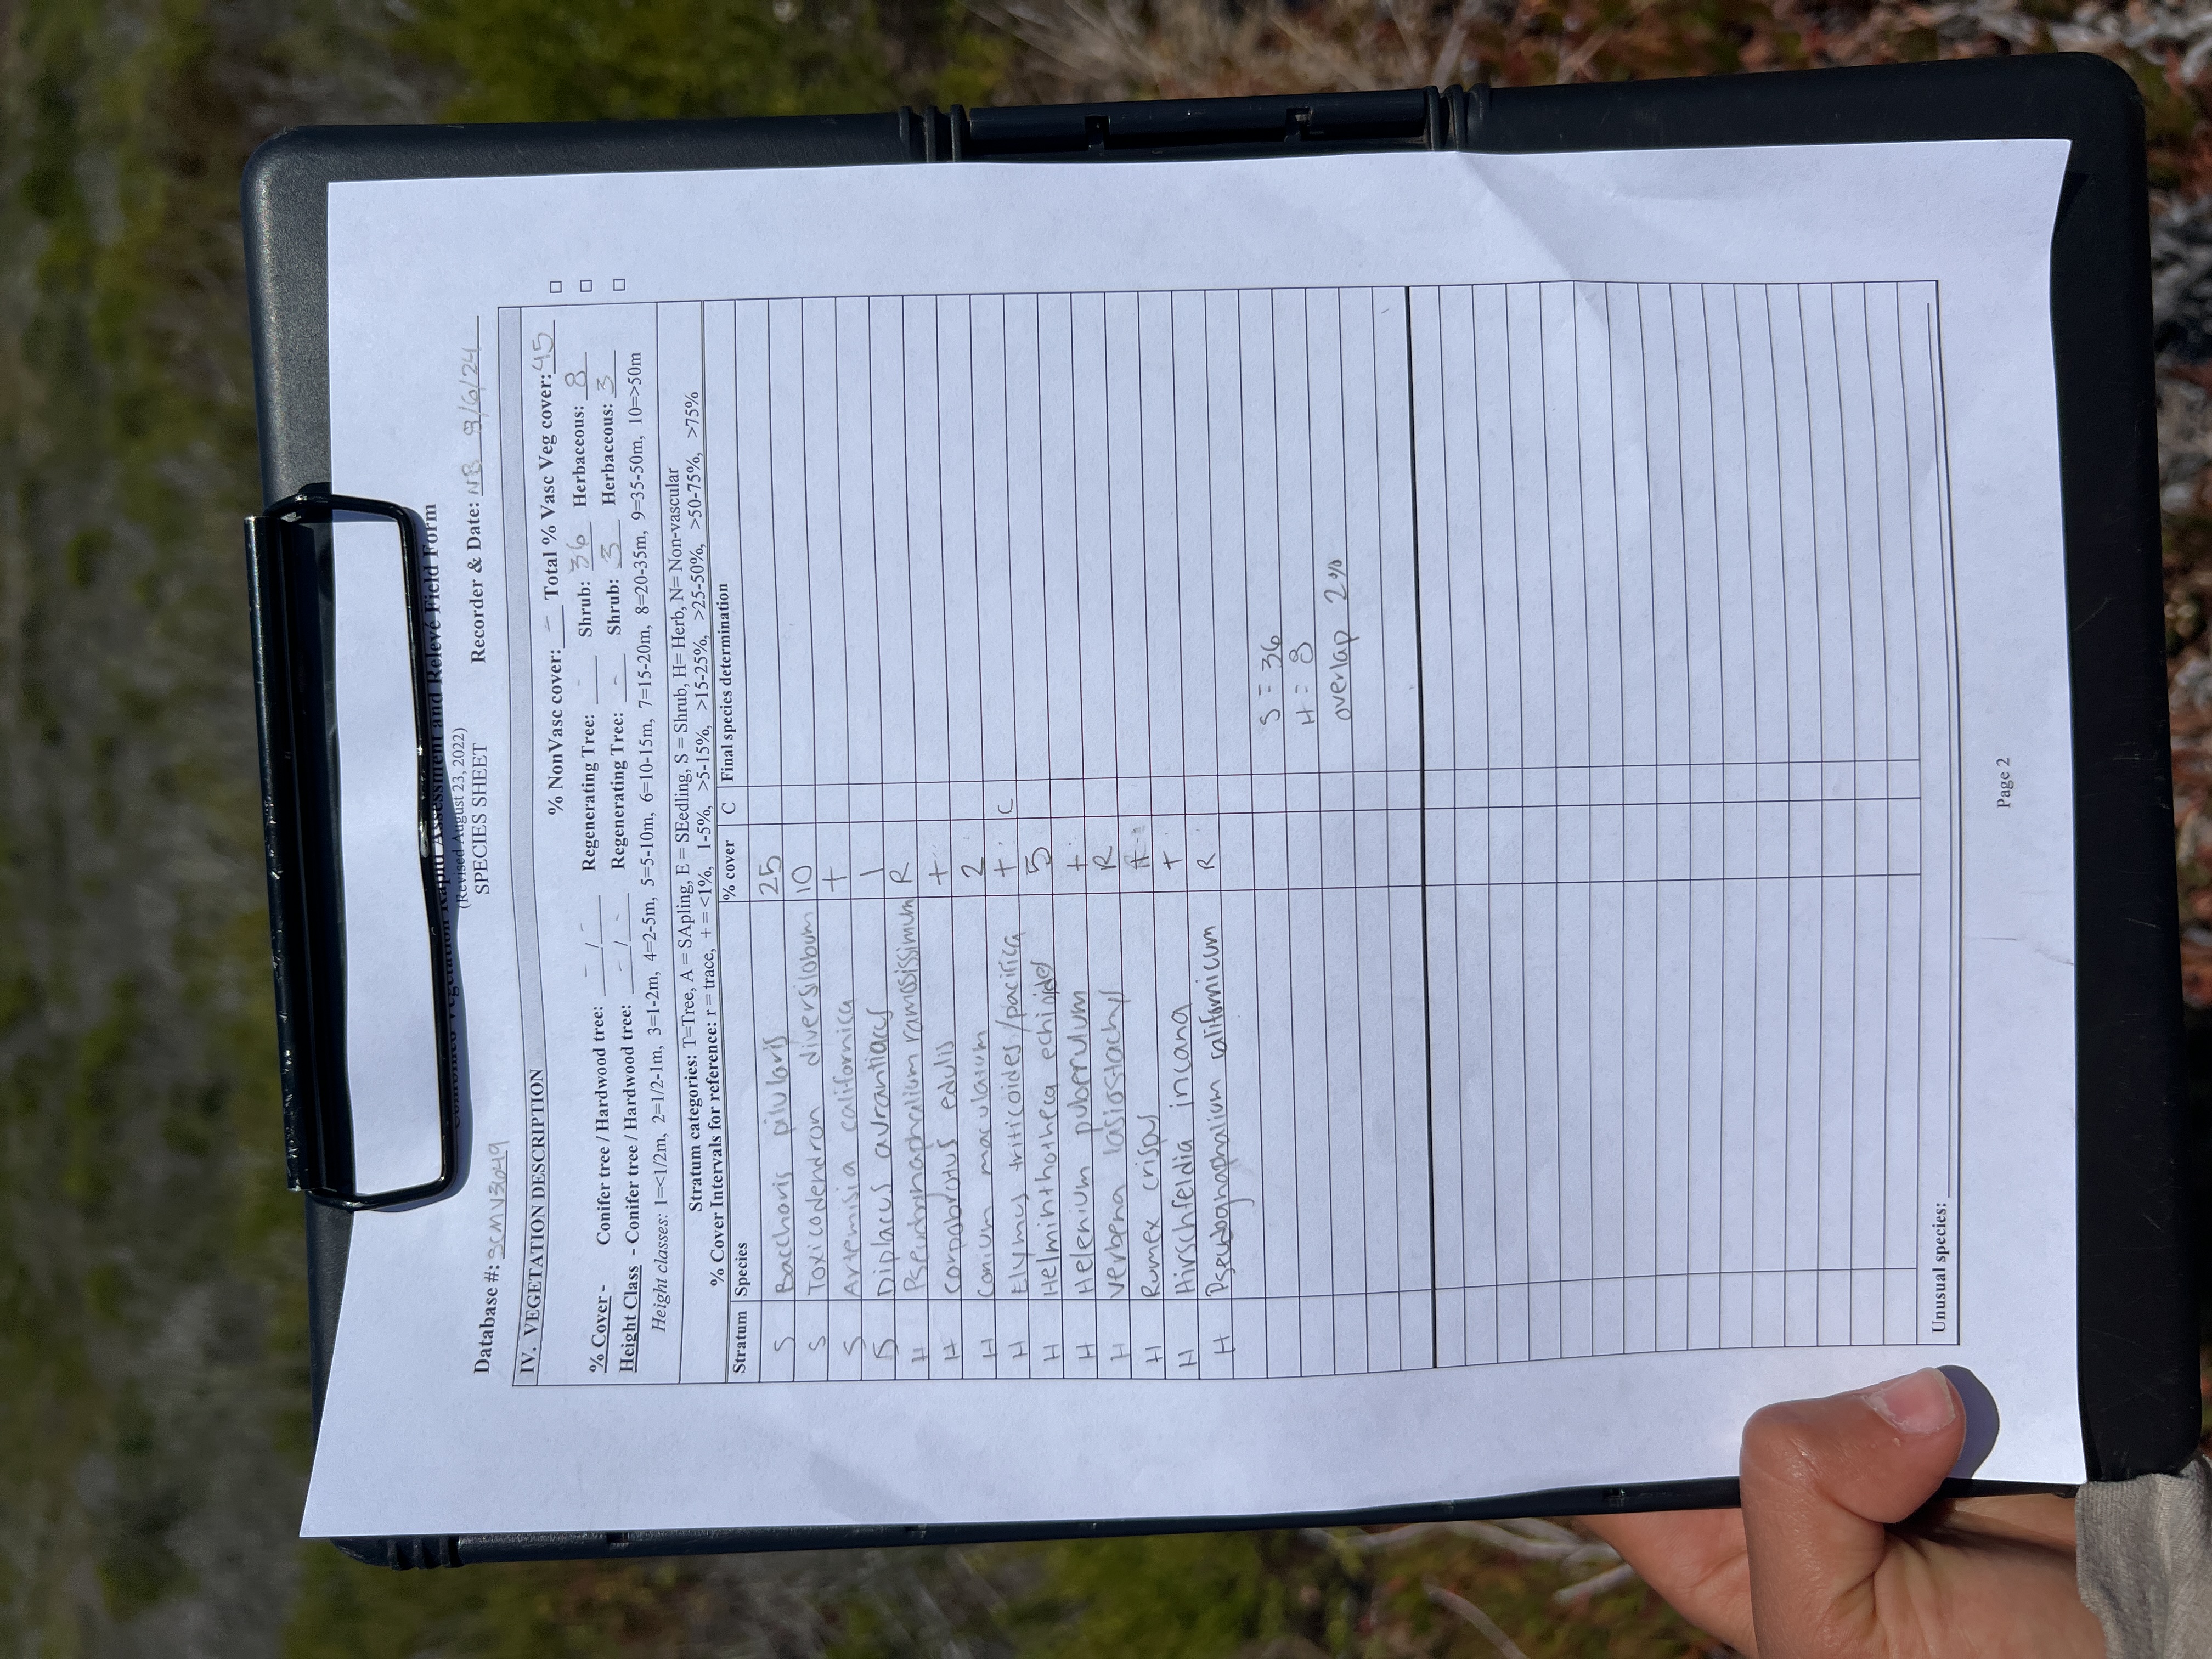 Combined Vegetation Rapid Assessment and Relevé Field Form
(Revised August 23, 2022)
SPECIES SHEET
Database #: SCMV3049 Recorder & Date: NB 9/6/24
IV. VEGETATION DESCRIPTION
% NonVasc cover: - Total % Vasc Veg cover: 45 □
% Cover - Conifer tree / Hardwood tree: - / - Regenerating Tree: - Shrub: 36 Herbaceous: 8 □
Height Class - Conifer tree / Hardwood tree: - / - Regenerating Tree: - Shrub: 3 Herbaceous: 3 □
Height classes: 1=<1/2m, 2=1/2-1m, 3=1-2m, 4=2-5m, 5=5-10m, 6=10-15m, 7=15-20m, 8=20-35m, 9=35-50m, 10=>50m
Stratum categories: T=Tree, A = SApling, E = SEedling, S = Shrub, H= Herb, N= Non-vascular
% Cover Intervals for reference: r = trace, + = <1%, 1-5%, >5-15%, >15-25%, >25-50%, >50-75%, >75%
Stratum Species % cover C Final species determination
S Baccharis pilularis 25
S Toxicodendron diversilobum 10
S Artemisia californica +
S Diplacus aurantiacus 1
H Pseudognaphalium ramosissimum R
H Carpobrotus edulis +
H Conium maculatum 2
H Elymus triticoides/pacifica + C
H Helminthotheca echioides 5
H Helenium puberulum +
H Verbena lasiostachys R
H Rumex crispus
H Hirschfeldia incana +
H Pseudognaphalium californicum R
S = 36
H = 8
overlap 2%
Unusual species:
Page 2